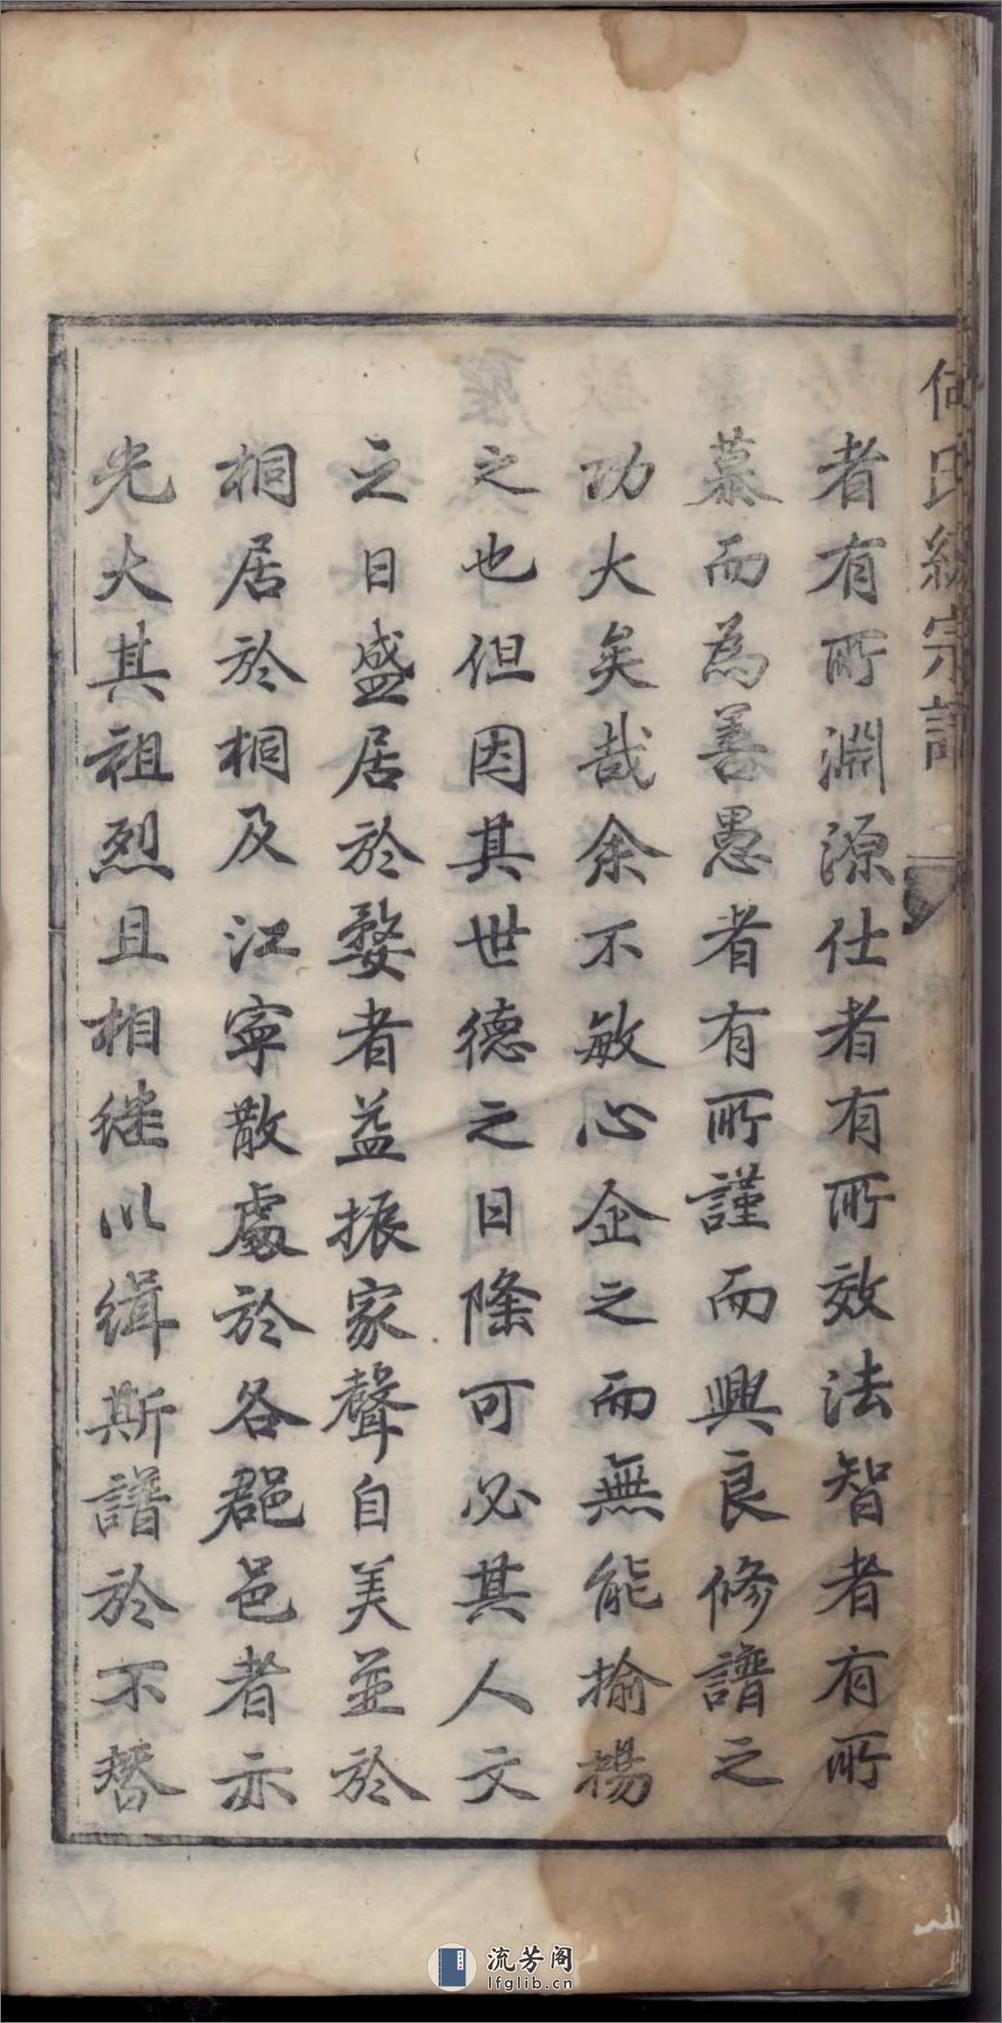 何氏統宗譜
者有所淵源仕者有所效法智者有所
慕而為善愚者有所謹而興良修譜之
功大矣哉余不敏心企之而無能揄揚
之也但因其世德之日隆可必其人文
之日盛居於婺者益振家聲自美並於
桐居於桐及江寧散處於各郡邑者亦
光大其祖烈且相继以缉斯譜於不替
流芳阁
lfglib.cn